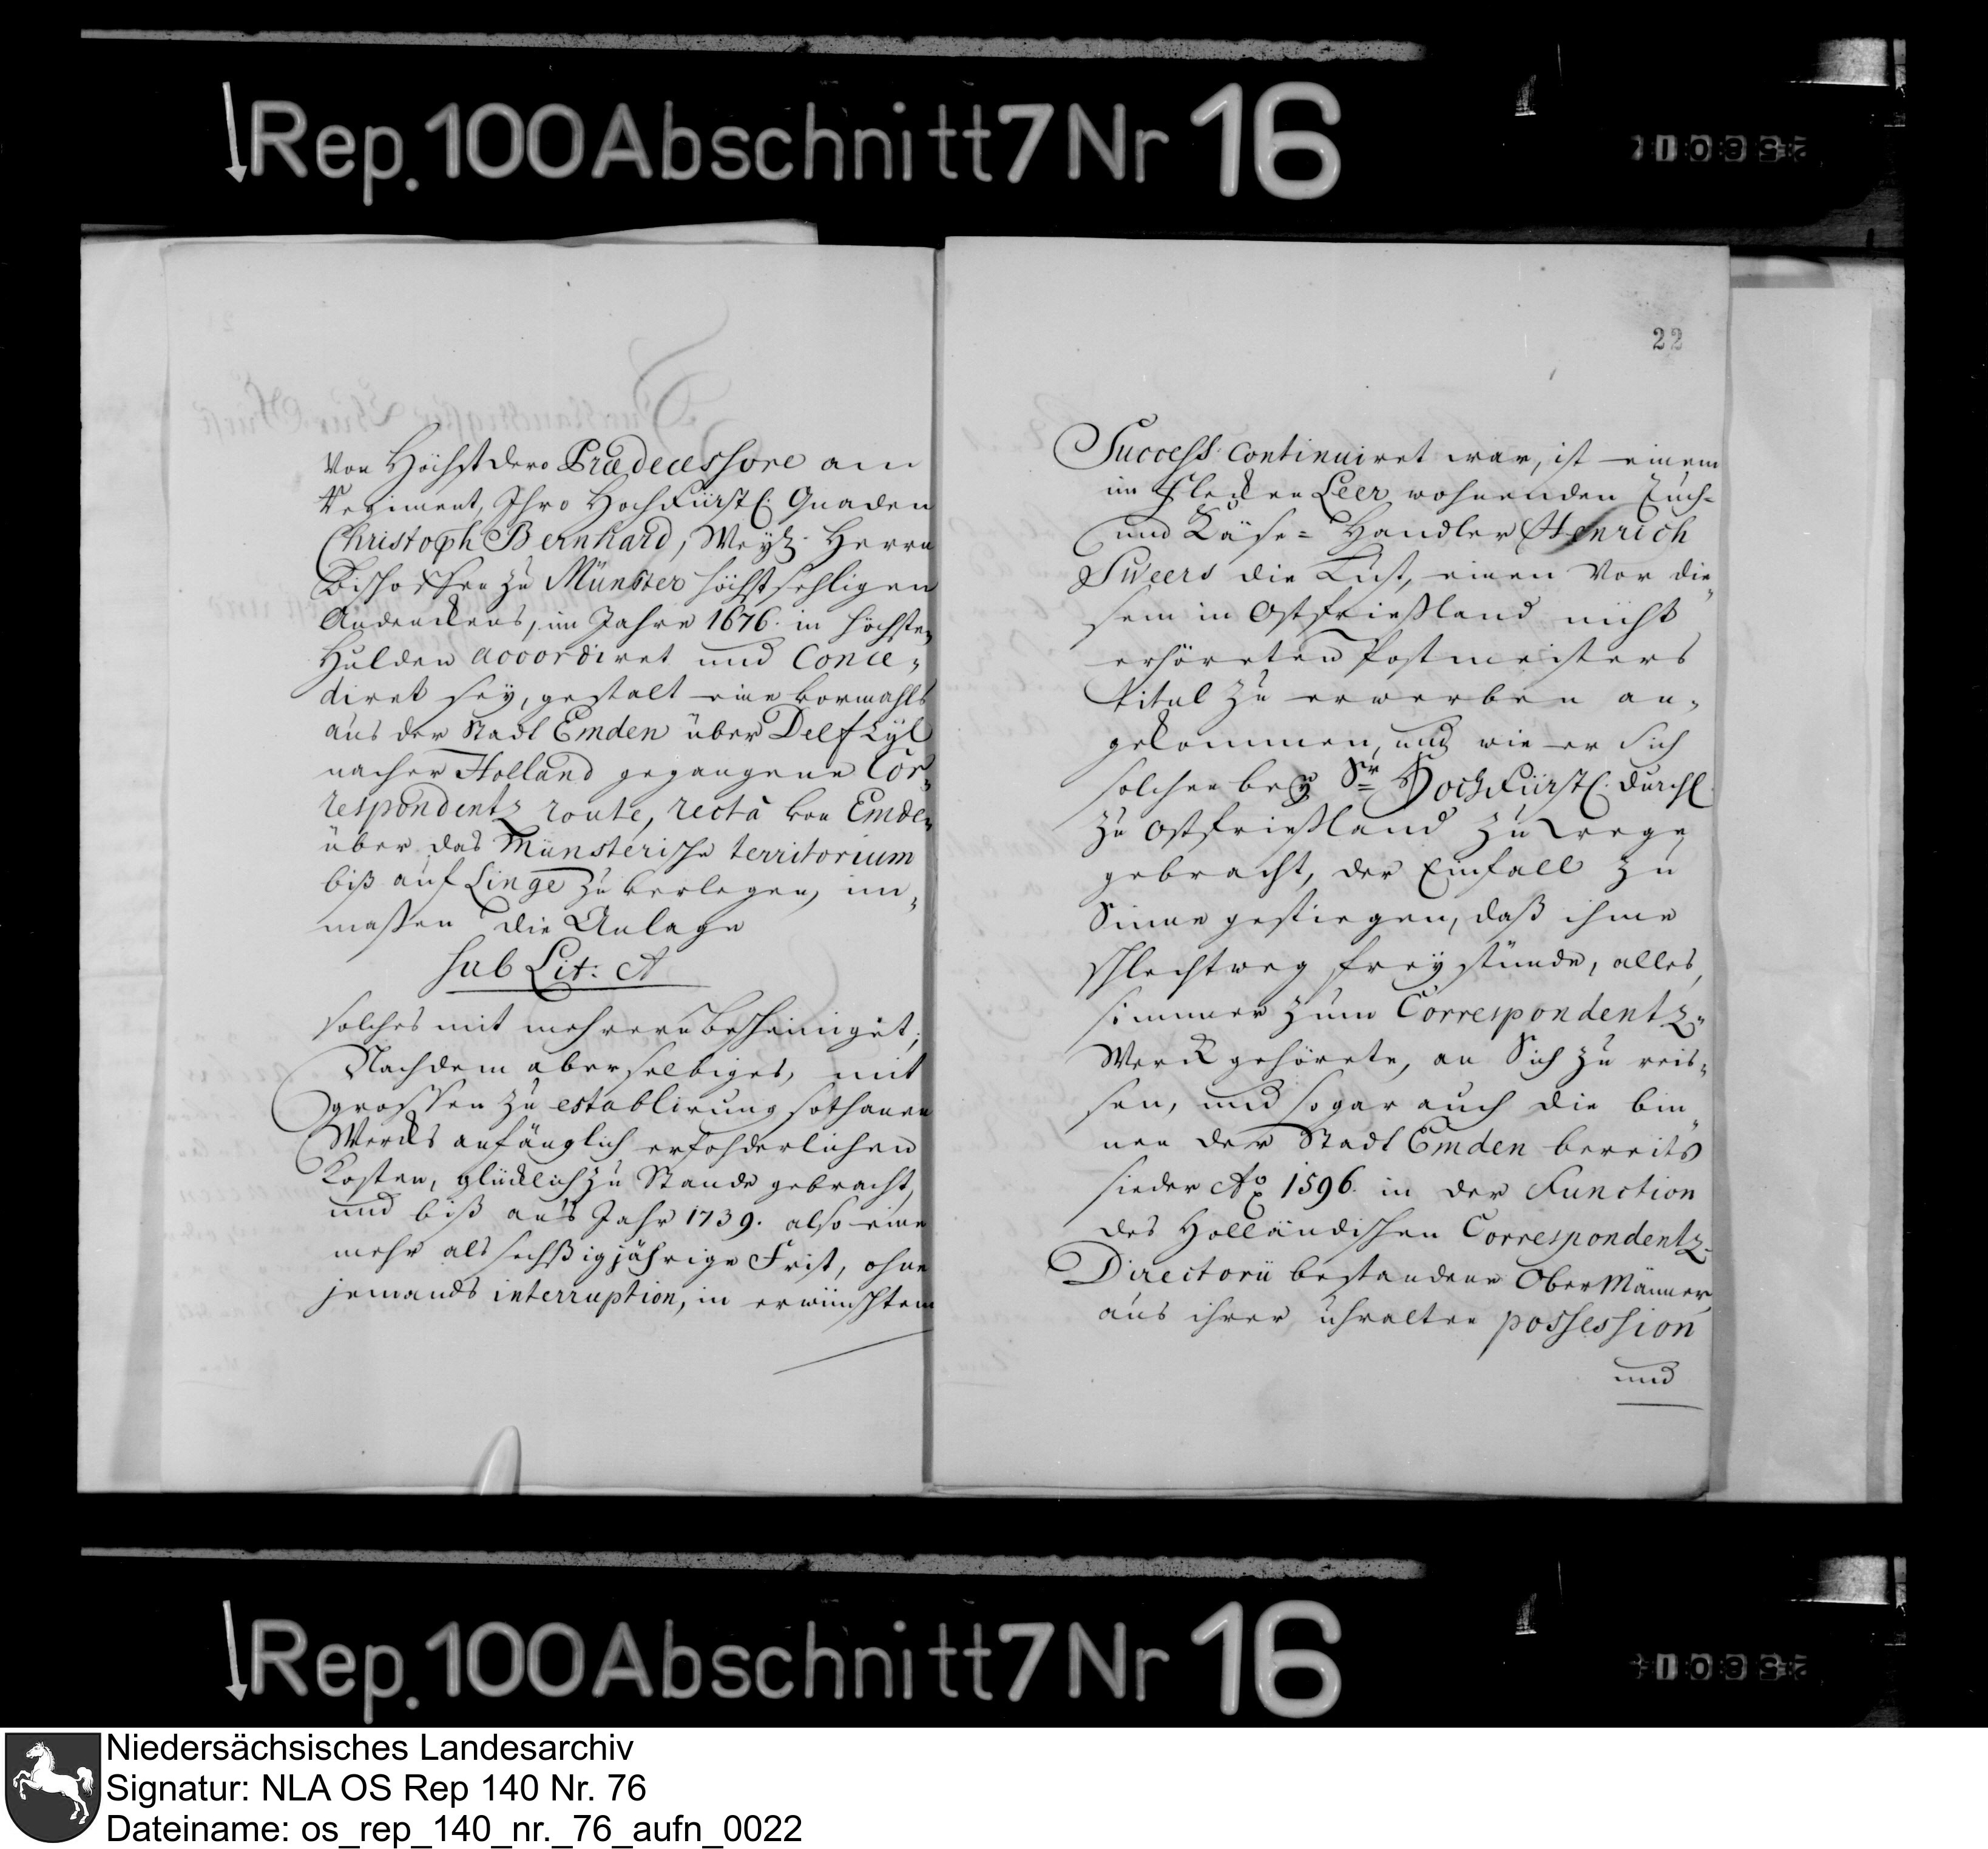 Rep. 100 Abschnitt 7 Nr 16
von Höchst dero Prædecessore am
Regiment, Ihro HochFürstl: Gnaden
Christoph Bernhard, Weyl: Herrn
Bischoffen zu Münster höchstseeligen
Andenckens, im Jahre 1676. in höchsten
Hulden accordiret und Conce„
diret sey, gestalt eine vormahls
aus der Stadt Emden über Delfzyl
nacher Holland gegangene Cor„
respondentz route, rectà von Emden
über das Münsterische territorium
biß auf Linge zu verlegen, im„
maßen die Anlage
sub Lit: A
solches mit mehrern bescheiniget;
Nachdem aber selbiges, mit
grossen zu establirung sothanen
Wercks anfänglich erfohderlichen
Kosten, glücklich zu Stande gebracht,
und biß an's Jahr 1739. also eine
mehr als sechßigjährige Frist, ohne
jemands interruption, in erwünschtem
22
Success continuiret war, ist einem
im Flecken Leer wohnenden Tuch-
und Käse= Handler Henrich
Sweers die Lust, einen vor die„
sem in Ostfrießland nicht
erhöreten Postmeisters
titul zu erwerben an„
gekommen, und wie er sich
solchen bey Sr HochFürstl: Durchl.
zu Ostfrießland zu wege
gebracht, der Einfall zu
Sinne gestiegen, daß ihme
schlechtweg frey stünde, alles,
simmer zum Correspondentz„
Werck gehörete, an Sich zu reis„
sen, und sogar auch die bin„
nen der Stadt Emden bereits
sieder Ao 1596. in der Function
des Holländischen Correspondentz-
Directorii bestandene OberMänner,
aus ihrer uhralten possession
und
Rep. 100 Abschnitt 7 Nr 16
Niedersächsisches Landesarchiv
Signatur: NLA OS Rep 140 Nr. 76
Dateiname: os_rep_140_nr._76_aufn_0022